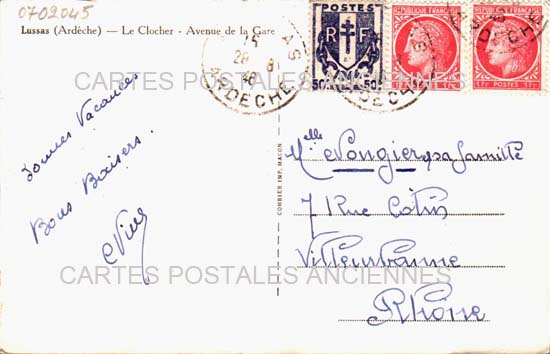 0702045
Lussas (Ardèche) — Le Clocher - Avenue de la Gare
POSTES
RF
50c 50c
RÉPUBLIQUE FRANÇAISE
1F POSTES 1F
RÉPUBLIQUE FRANÇAISE
1F POSTES 1F
15
28 8
46
ARDECHE
CARTES POSTALES ANCIENNES
Bonnes Vacances
Bons Baisers.
COMBIER IMP. MACON
Melle Vougier sa famille
7 Rue Colin
Villeurbanne
Rhône
CARTES POSTALES ANCIENNES